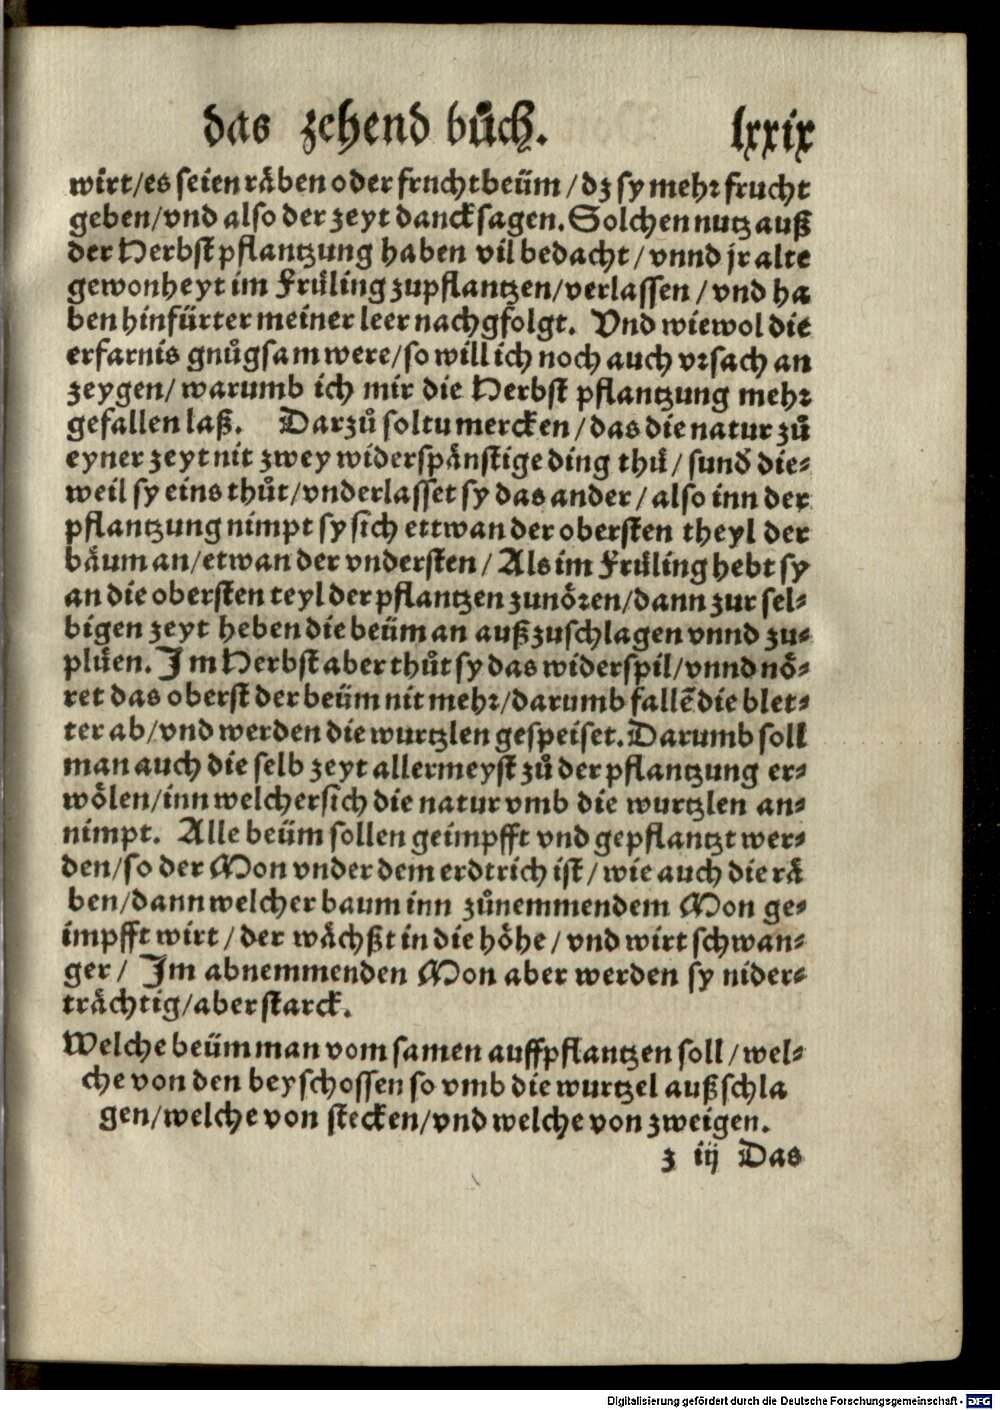 das zehend bůch. lxxix
wirt/es seien räben oder frnchtbeüm/dz sy mehr frucht
geben/vnd also der zeyt dancksagen. Solchen nutz auß
der Herbst pflantzung haben vil bedacht/vnnd jr alte
gewonheyt im Früling zupflantzen/verlassen/vnd ha
ben hinfürter meiner leer nachgfolgt. Vnd wiewol die
erfarnis gnůgsam were/so will ich noch auch vrsach an
zeygen/warumb ich mir die Herbst pflantzung mehr
gefallen laß. Darzů soltu mercken/das die natur zů
eyner zeyt nit zwey widerspänstige ding thů/sunď die⸗
weil sy eins thůt/vnderlasset sy das ander/also inn der
pflantzung nimpt sy sich ettwan der obersten theyl der
bäum an/etwan der vndersten/Als im Früling hebt sy
an die obersten teyl der pflantzen zunören/dann zur sel⸗
bigen zeyt heben die beüm an auß zuschlagen vnnd zu⸗
plüen. Im Herbst aber thůt sy das widerspil/vnnd nö⸗
ret das oberst der beüm nit mehr/darumb fallẽ die blet⸗
ter ab/vnd werden die wurtzlen gespeiset. Darumb soll
man auch die selb zeyt allermeyst zů der pflantzung er⸗
wölen/inn welcher sich die natur vmb die wurtzlen an⸗
nimpt. Alle beüm sollen geimpfft vnd gepflantzt wer⸗
den/so der Mon vnder dem erdtrich ist/wie auch die rä
ben/dann welcher baum inn zůnemmendem Mon ge⸗
impfft wirt/der wächßt in die höhe/vnd wirt schwan⸗
ger/Im abnemmenden Mon aber werden sy nider⸗
trächtig/aber starck.
Welche beüm man vom samen auffpflantzen soll/wel⸗
che von den beyschossen so vmb die wurtzel außschla
gen/welche von stecken/vnd welche von zweigen.
z iij Das
Digitalisierung gefördert durch die Deutsche Forschungsgemeinschaft - DFG